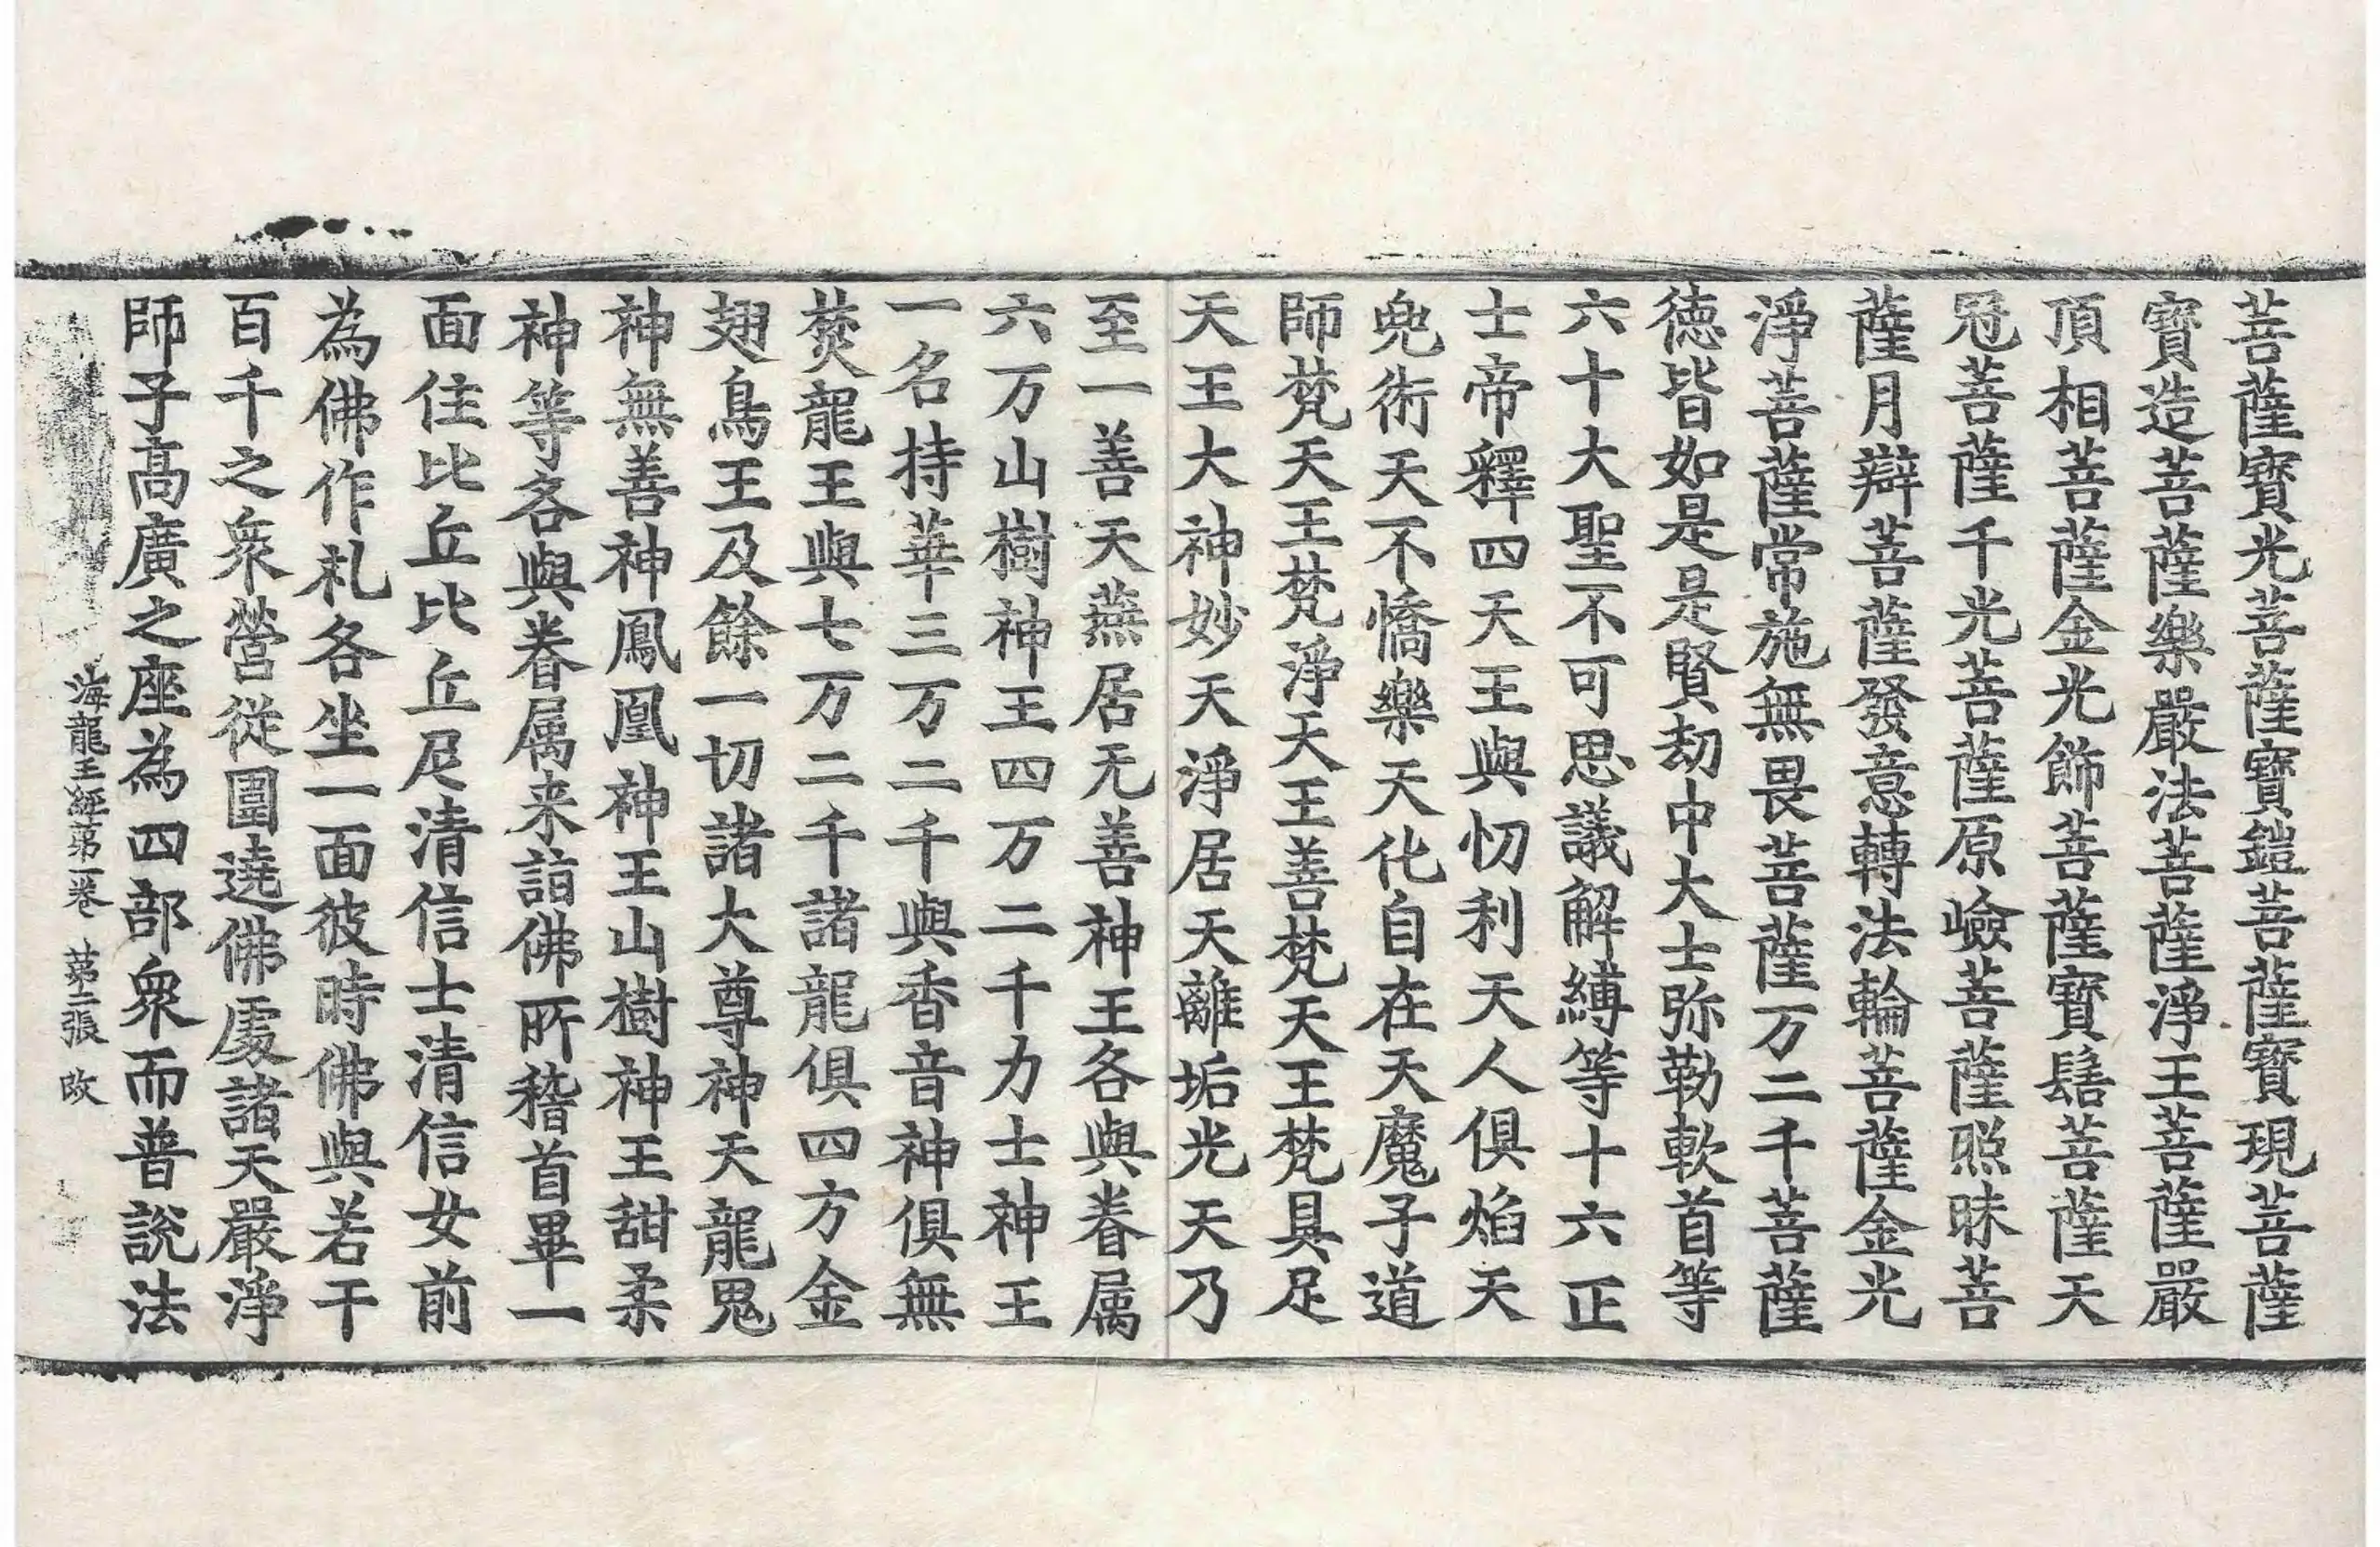 菩薩寶光菩薩寶鎧菩薩寶現菩薩
寶造菩薩樂嚴法菩薩淨王菩薩嚴
頂相菩薩金光飾菩薩寶髻菩薩天
冠菩薩千光菩薩原嶮菩薩照昧菩
薩月辯菩薩發意轉法輪菩薩金光
淨菩薩常施無畏菩薩万二千菩薩
德皆如是是賢劫中大士弥勒軟首等
六十大聖不可思議解縛等十六正
士帝釋四天王與忉利天人俱焰天
兜術天不憍樂天化自在天魔子道
師梵天王梵淨天王善梵天王梵具足
天王大神妙天淨居天離垢光天乃
至一善天燕居无善神王各與眷属
六万山樹神王四万二千力士神王
一名持華三万二千與香音神俱無
焚龍王與七万二千諸龍俱四方金
翅鳥王及餘一切諸大尊神天龍鬼
神無善神鳳凰神王山樹神王甜柔
神等各與眷属来詣佛所稽首畢一
面住比丘比丘尼清信士清信女前
為佛作札各坐一面彼時佛與若干
百千之衆營從圍遶佛處諸天嚴淨
師子高廣之座為四部衆而普說法
海龍王經第一卷 第二張 欧